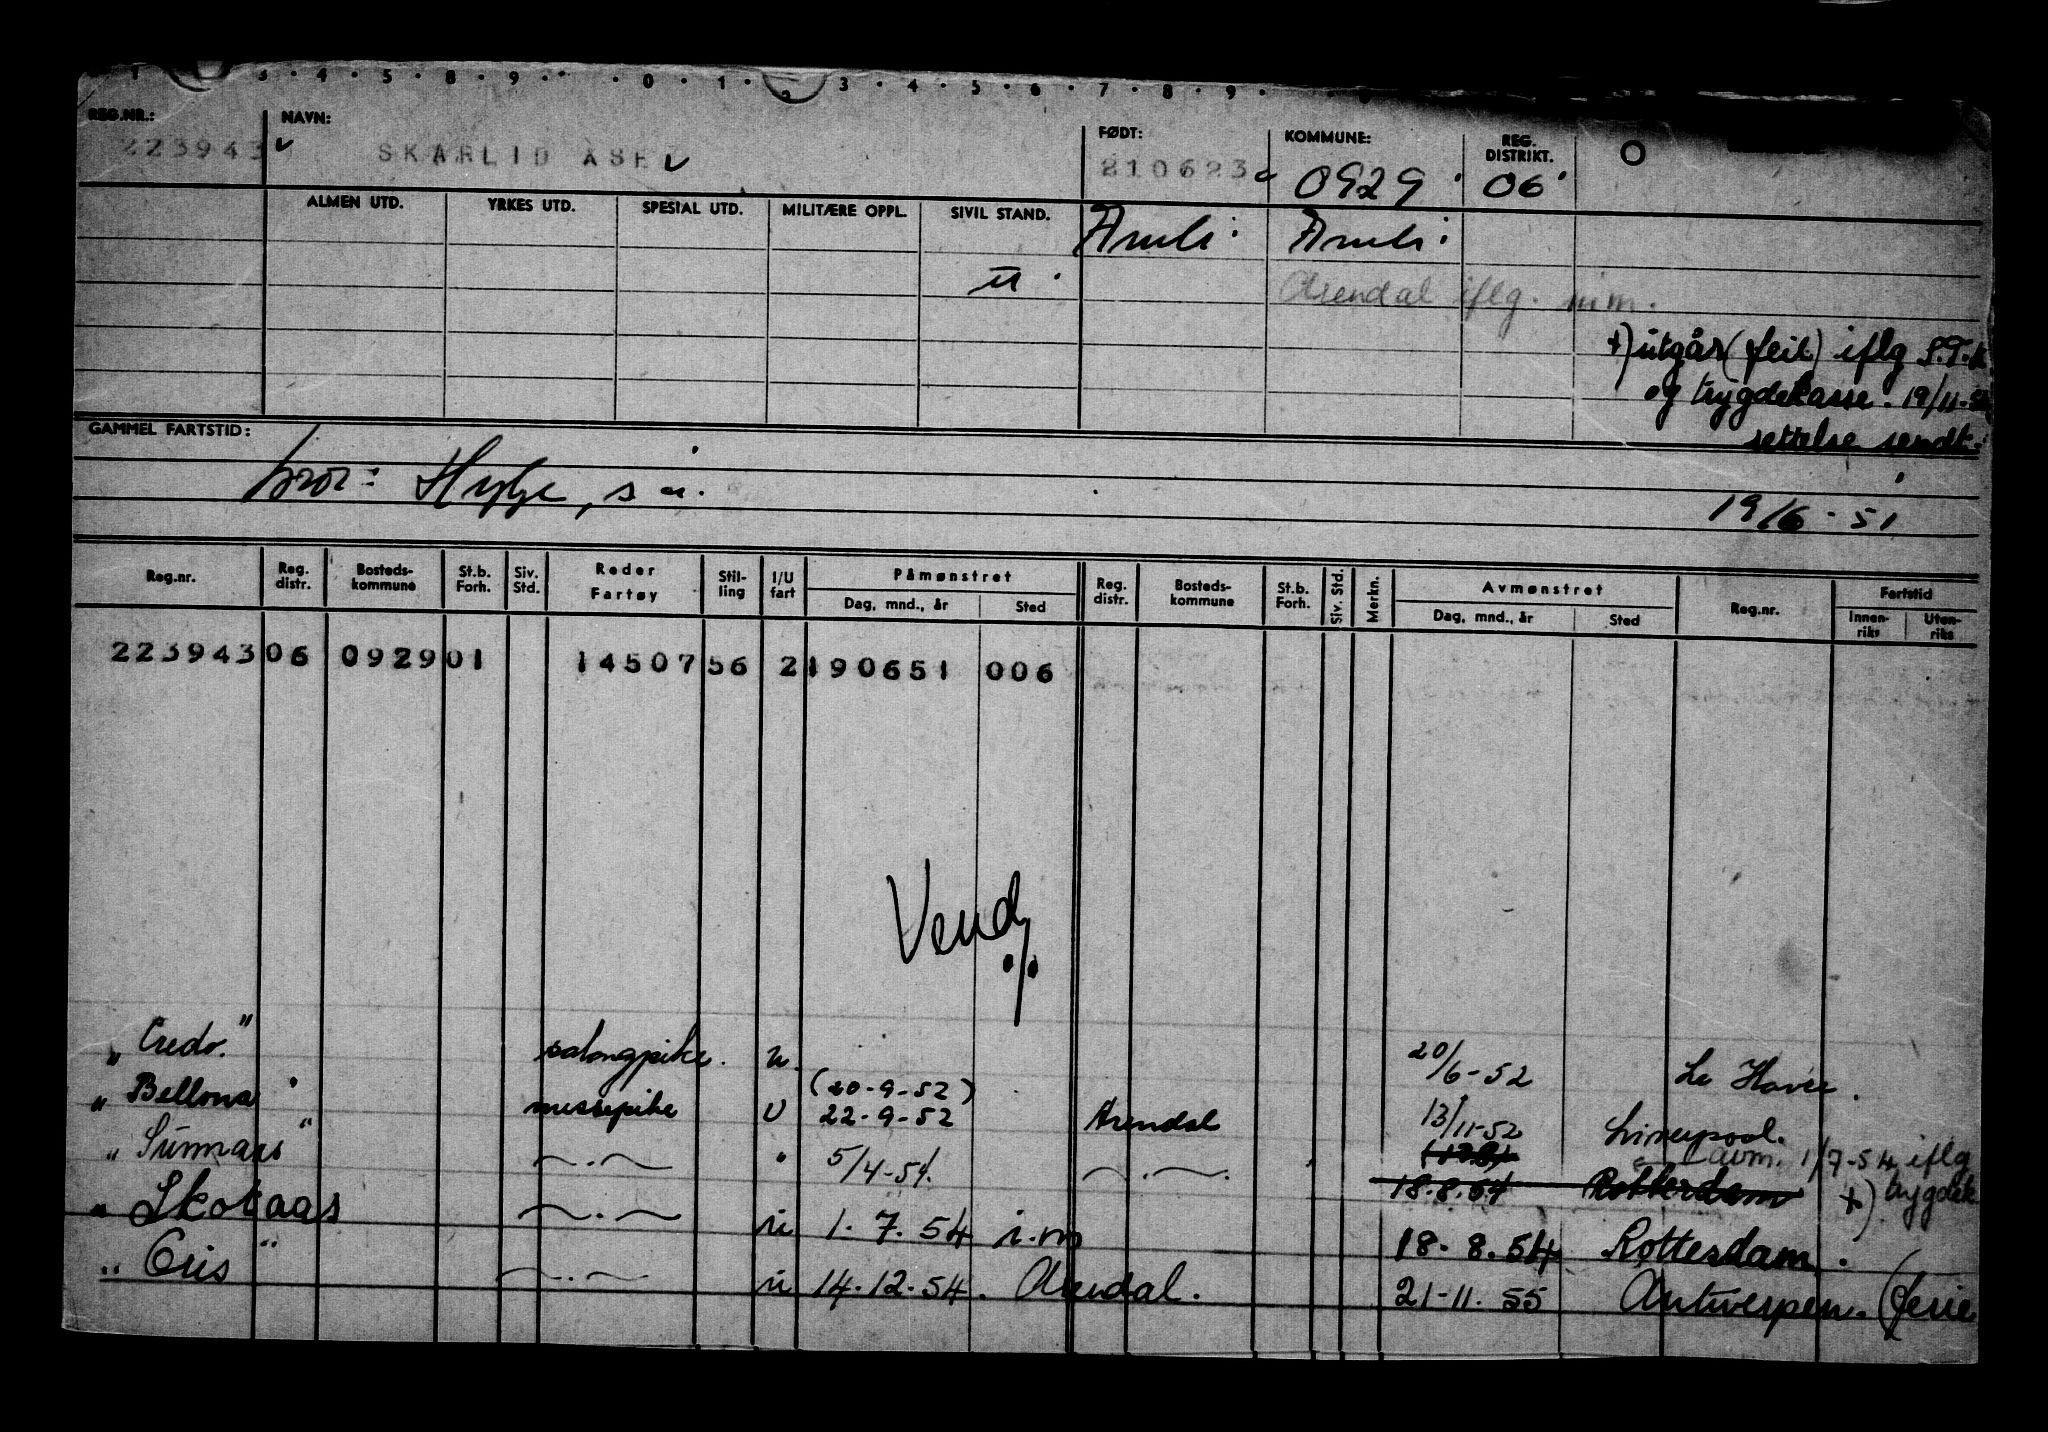 1 3 · 4 · 5 · 8 · 9 · 0 · 1 · 2 3 · 4 · 5 · 6 · 7 · 8 · 9 ·
REG.NR.: NAVN: FØDT: KOMMUNE: REG. DISTRIKT.
223943 SKARLID ÅSE 210623 0929 06
ALMEN UTD. YRKES UTD. SPESIAL UTD. MILITÆRE OPPL. SIVIL STAND.
Åmli Åmli
u Arendal iflg. m.m.
+) utgår (feil) iflg S.T.K
og trygdekasse. 19/11-
rettelse sendt.
GAMMEL FARTSTID:
bror: Hylje, s å. 19/6-51
Reg.nr. Reg. distr. Bosteds-kommune St.b. Forh. Siv. Std. Reder Fartøy Stil-ling I/U fart Påmønstret Dag, mnd., år Sted Reg. distr. Bosteds-kommune St.b. Forh. Siv. Std. Merkn. Avmønstret Dag, mnd., år Sted Reg.nr. Fartstid Innen-riks Uten-riks
223943 06 0929 01 14507 56 2 190651 006
Vend
"Credo." salongpike. u. 20/6-52 Le Havre.
(20-9-52)
"Bellona" messepike U 22-9-52 Arendal 13/11-52 Liverpool.
"Sunnaas" —·— " 5/4-54. —·— avm. 1/7-54 iflg
18.8.54 Rotterdam +) trygdek
"Skotaas —·— u 1. 7. 54 i.m 18. 8. 54 Rotterdam.
"Eris" —·— u 14.12.54. Arendal. 21-11. 55 Antwerpen. (ferie